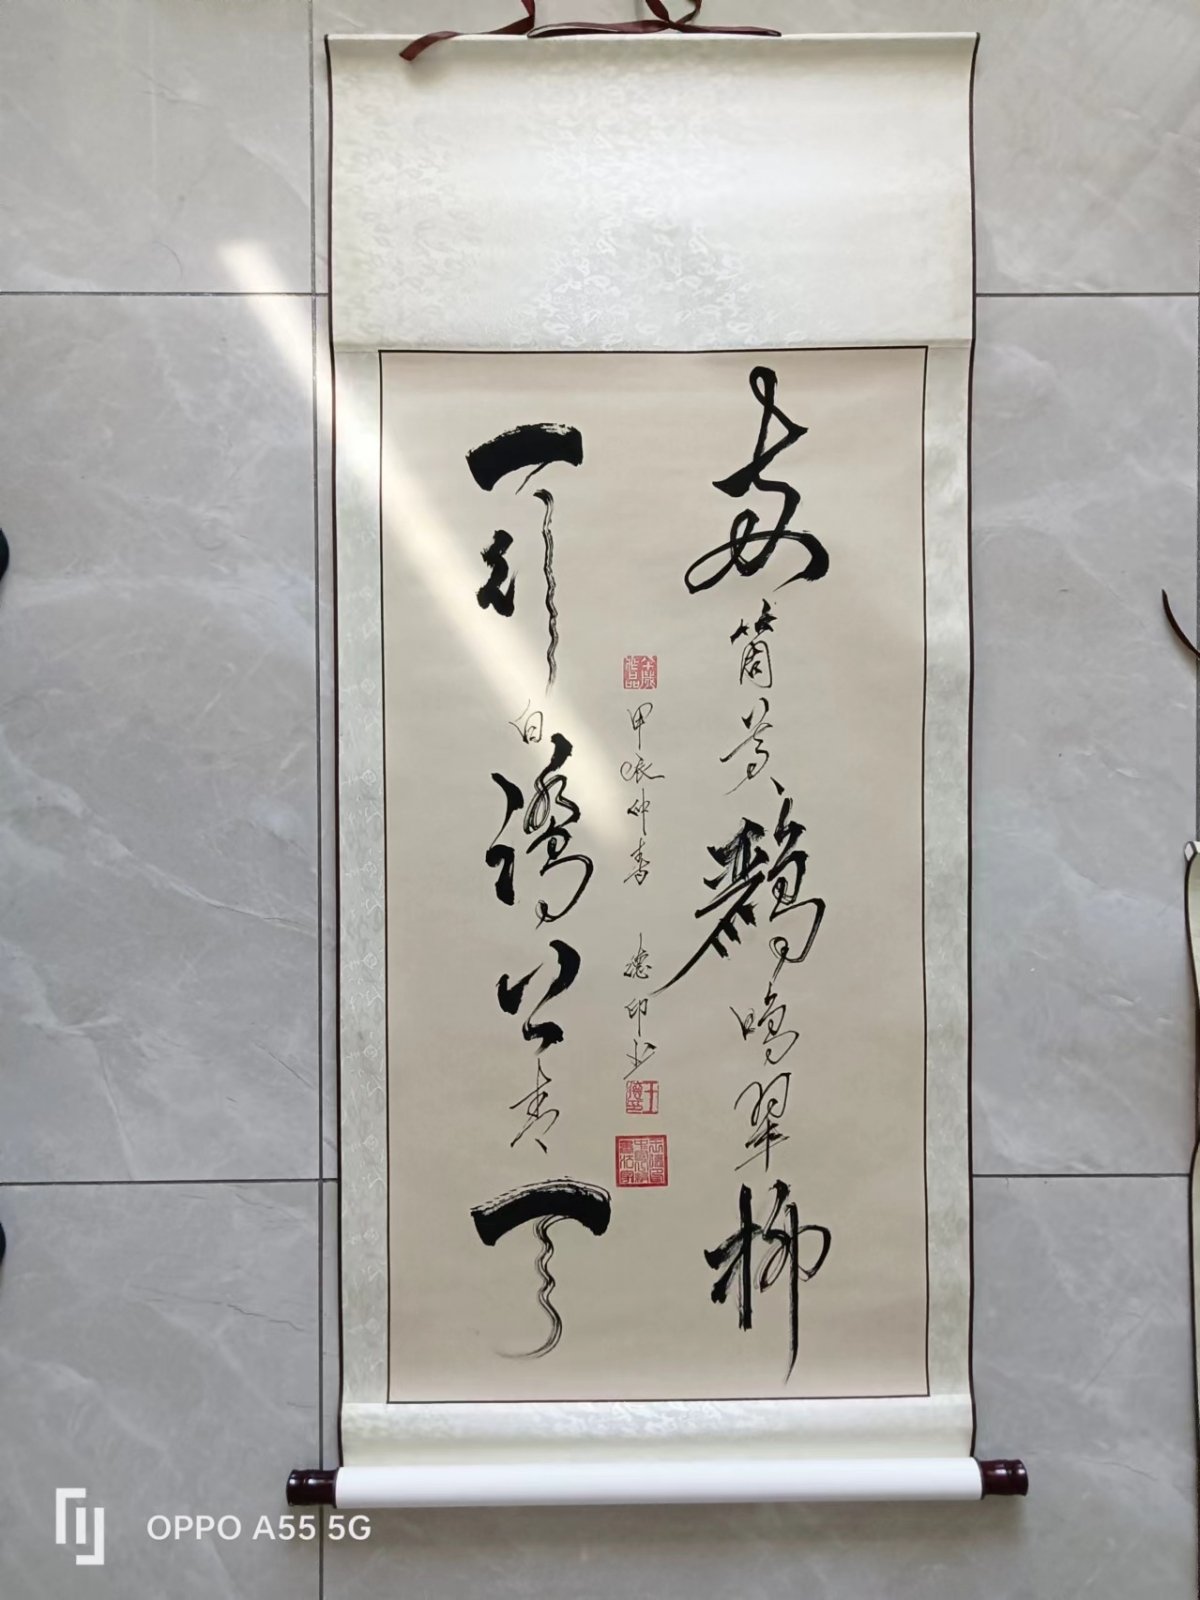 两箇黄鹂鸣翠柳
一行白鹭上青天
甲辰仲春 德印书
OPPO A55 5G